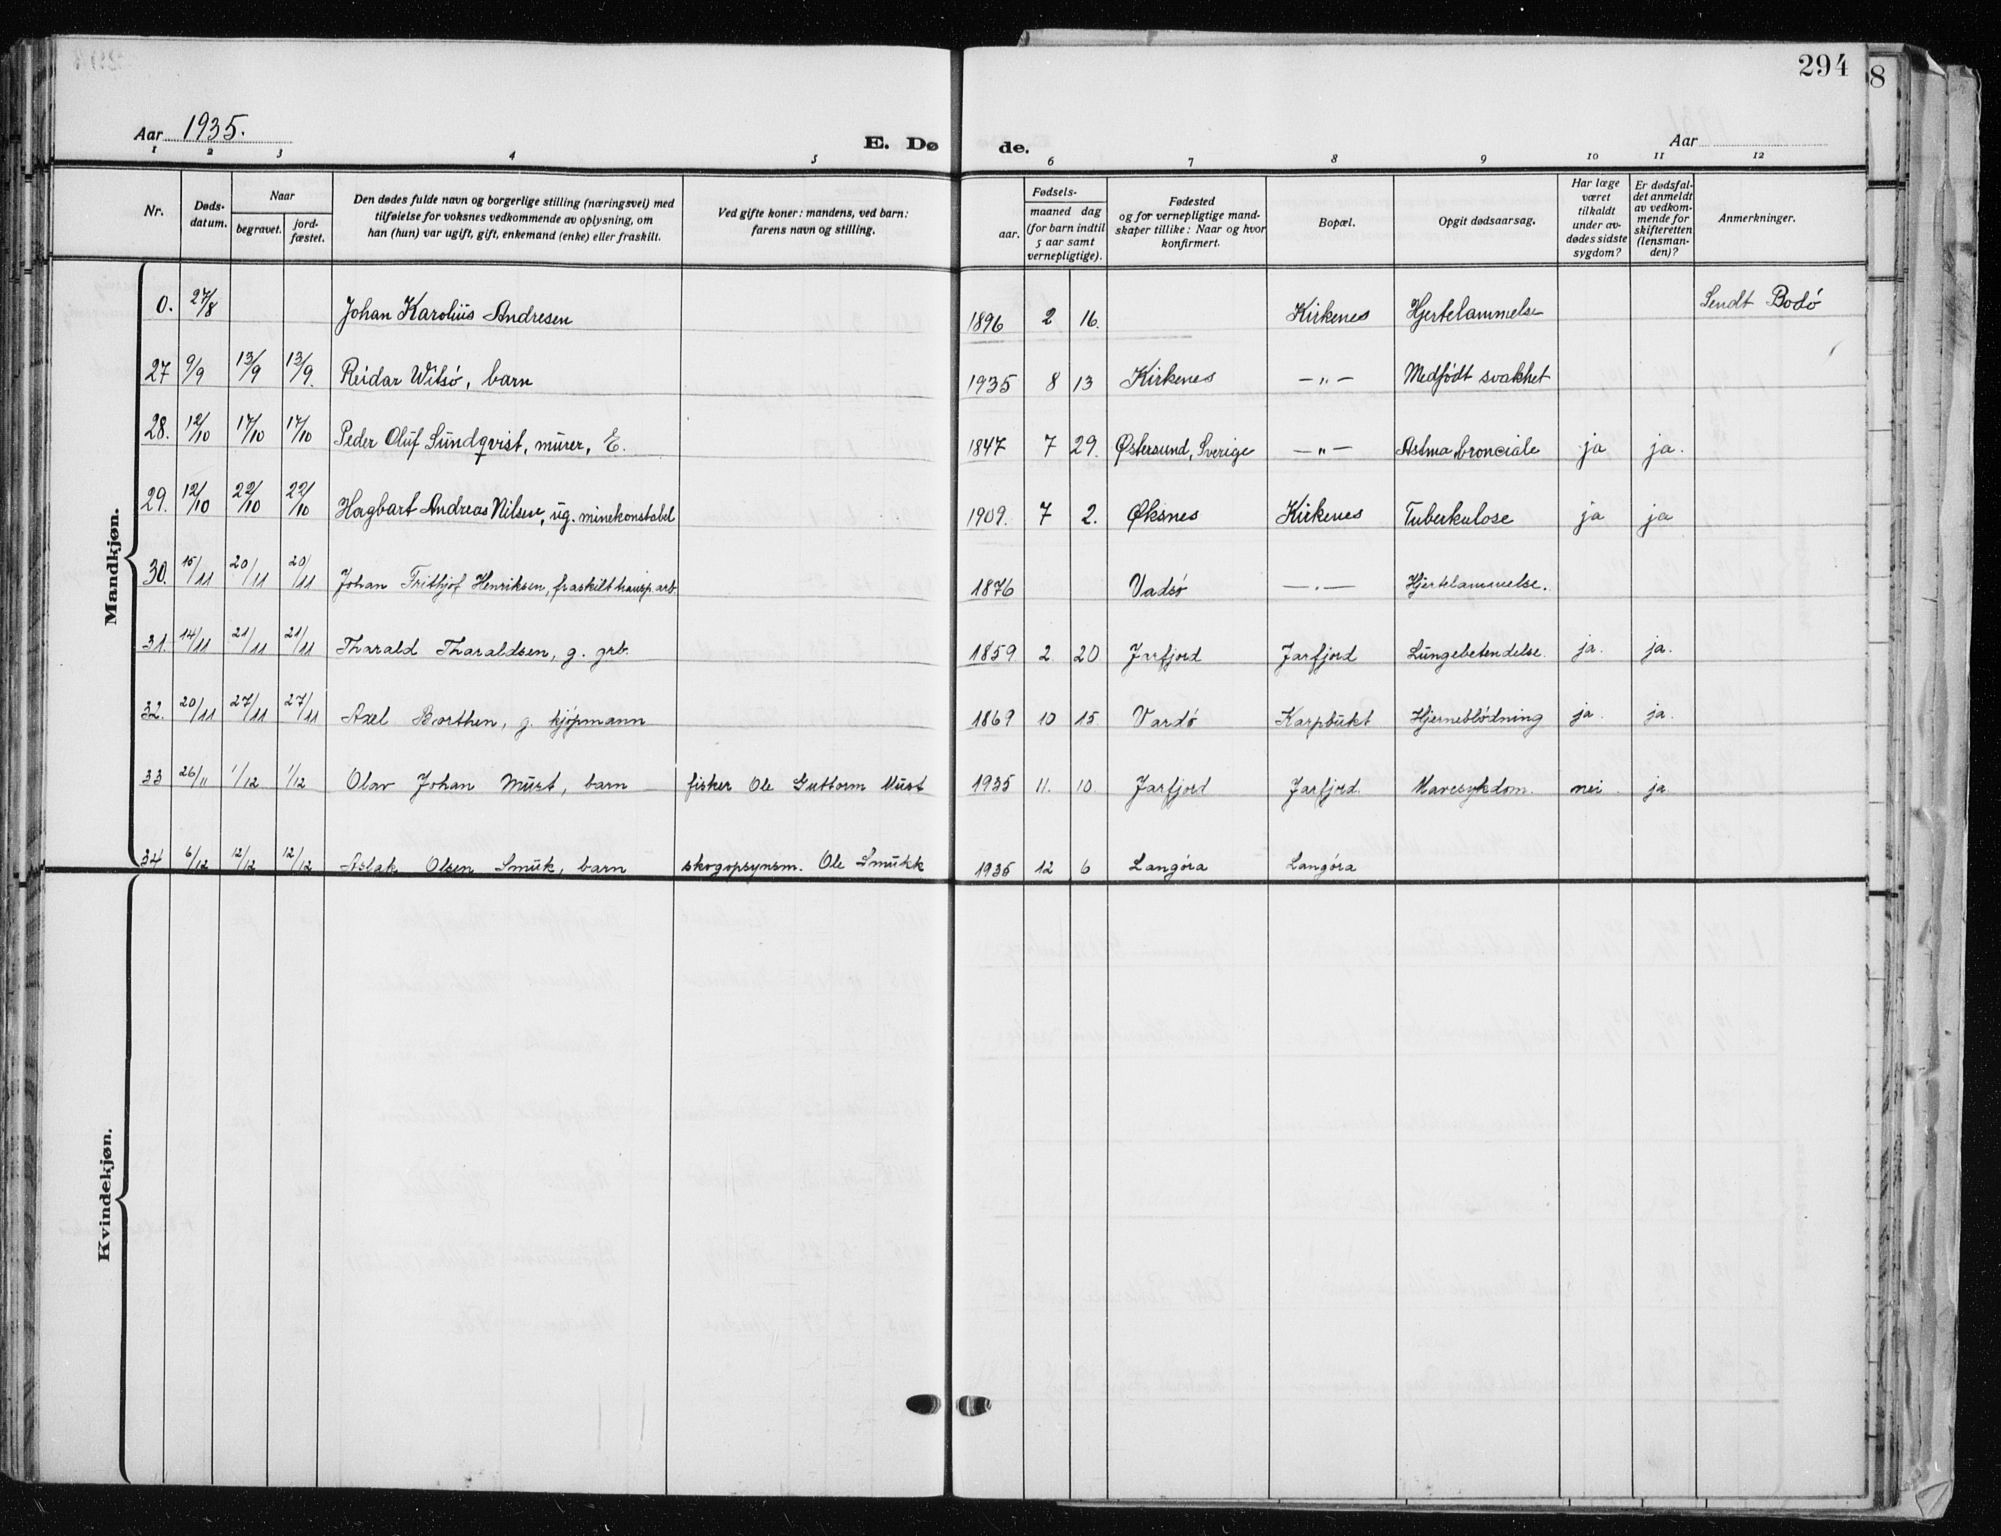 294
8
Aar 1935.
E. Dø de.
Aar
1 2 3 4 5 6 7 8 9 10 11 12
Nr.
Døds-
datum.
Naar
begravet.
jord-
fæstet.
Den dødes fulde navn og borgerlige stilling (næringsvei) med
tilføielse for voksnes vedkommende av oplysning, om
han (hun) var ugift, gift, enkemand (enke) eller fraskilt.
Ved gifte koner: mandens, ved barn:
farens navn og stilling.
Fødsels-
aar.
maaned dag
(for barn indtil
5 aar samt
vernepligtige).
Fødested
og for vernepligtige mand-
skaper tillike: Naar og hvor
konfirmert.
Bopæl.
Opgit dødsaarsag.
Har læge
været
tilkaldt
under av-
dødes sidste
sygdom?
Er dødsfal-
det anmeldt
av vedkom-
mende for
skifteretten
(lensman-
den)?
Anmerkninger.
Mandkjøn.
0. 27/8 Johan Karolius Andresen 1896 2 16. Kirkenes Hjertelammelse Sendt Bodö
27 9/9 13/9 13/9. Reidar Witsö, barn 1935 8 13 Kirkenes —„— Medfödt svakhet
28. 12/10 17/10 17/10 Peder Oluf Sundqvist, murer, E. 1847 7 29. Østersund, Sverige —„— Astma bronciale ja ja.
29. 12/10 22/10 22/10 Hagbart Andreas Nilsen, ug. minekonstabel 1909. 7 2. Øksnes Kirkenes Tuberkulose ja ja
30. 15/11 20/11 20/11 Johan Frithjof Henriksen, fraskilt transp. arb. 1876 Vadsö —„— Hjertelammelse.
31. 14/11 21/11 21/11 Tharald Tharaldsen, g. grb. 1859 2 20 Jarfjord Jarfjord Lungebetendelse. ja. ja.
32. 20/11 27/11 27/11 Axel Borthen, g. kjöpmann 1869 10 15. Vardö Karpbukt Hjerneblödning ja. ja.
33 26/11 1/12 1/12 Olav Johan Must, barn fisker Ole Guttorm Must 1935 11. 10. Jarfjord Jarfjord. Mavesykdom. nei. ja
34 6/12 12/12 12/12 Aslak Olsen Smuk, barn skogopsynsm. Ole Smukk 1935 12 6 Langöra Langöra
Kvindekjøn.